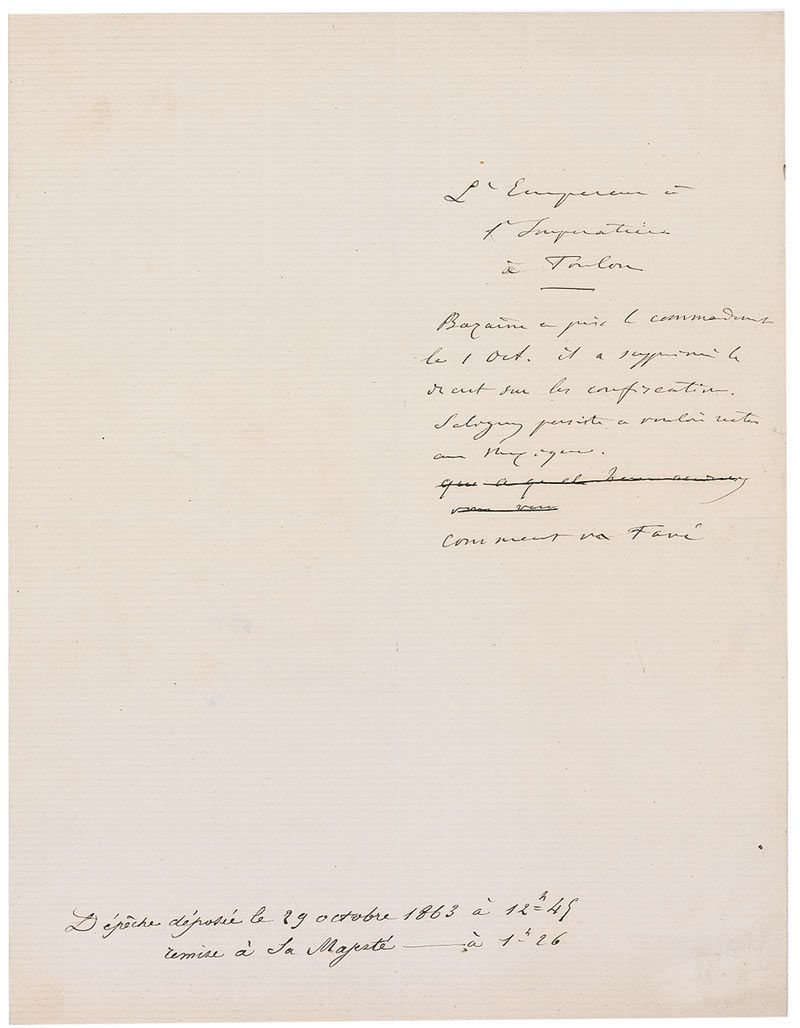 L'Empereur à
l'Imperatrice
à Toulon
Bazaine a pris le commandement
le 1 Oct. il a supprimé le
decret sur les confiscations.
Saligny persiste a vouloir rester
au Mexique.
que a
comment va Favé
Dépêche déposée le 29 octobre 1863 à 12h 45
remise à Sa Majesté — à 1h 26